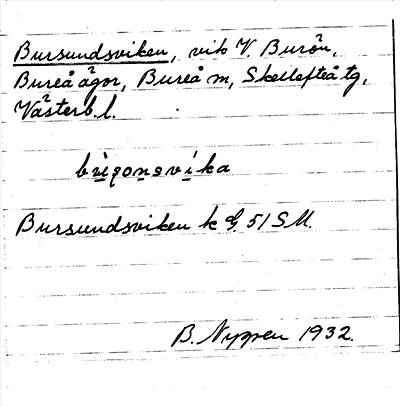 Bursundsviken, vik V. Burön,
Bureå ägor, Bureå sn, Skellefteå tg,
Västerb. l.
Bursundsviken k G. 51 S.U.
B. Nyppen 1932.